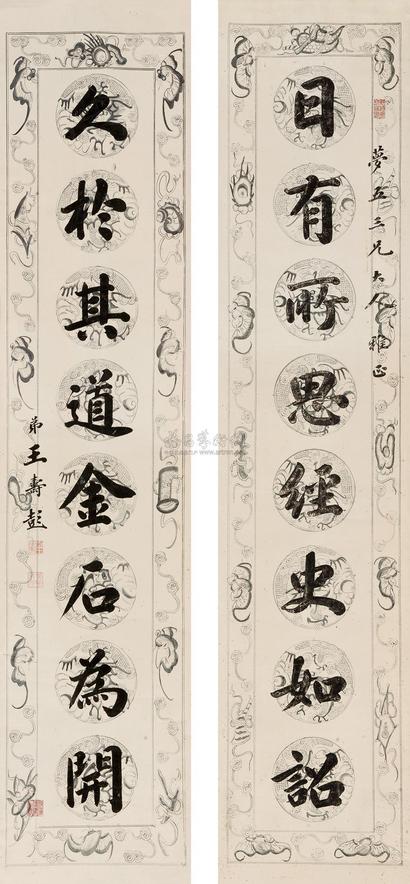 夢五三兄大人雅正
日有所思經史如詔
久於其道金石為開
弟王壽彭